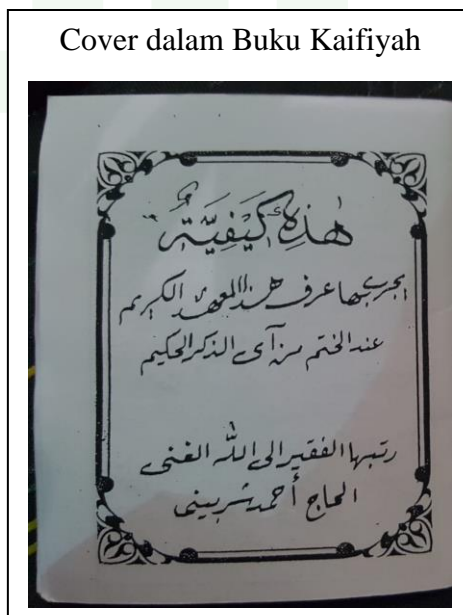 Cover dalam Buku Kaifiyah
هٰذِهِ كَيْفِيَّةٌ
يجرى بها عرف هذا المعهد الكريم
عند الختم من آى الذكر الحكيم
رتبها الفقير الى الله الغنى
الحاج أحمد شربينى